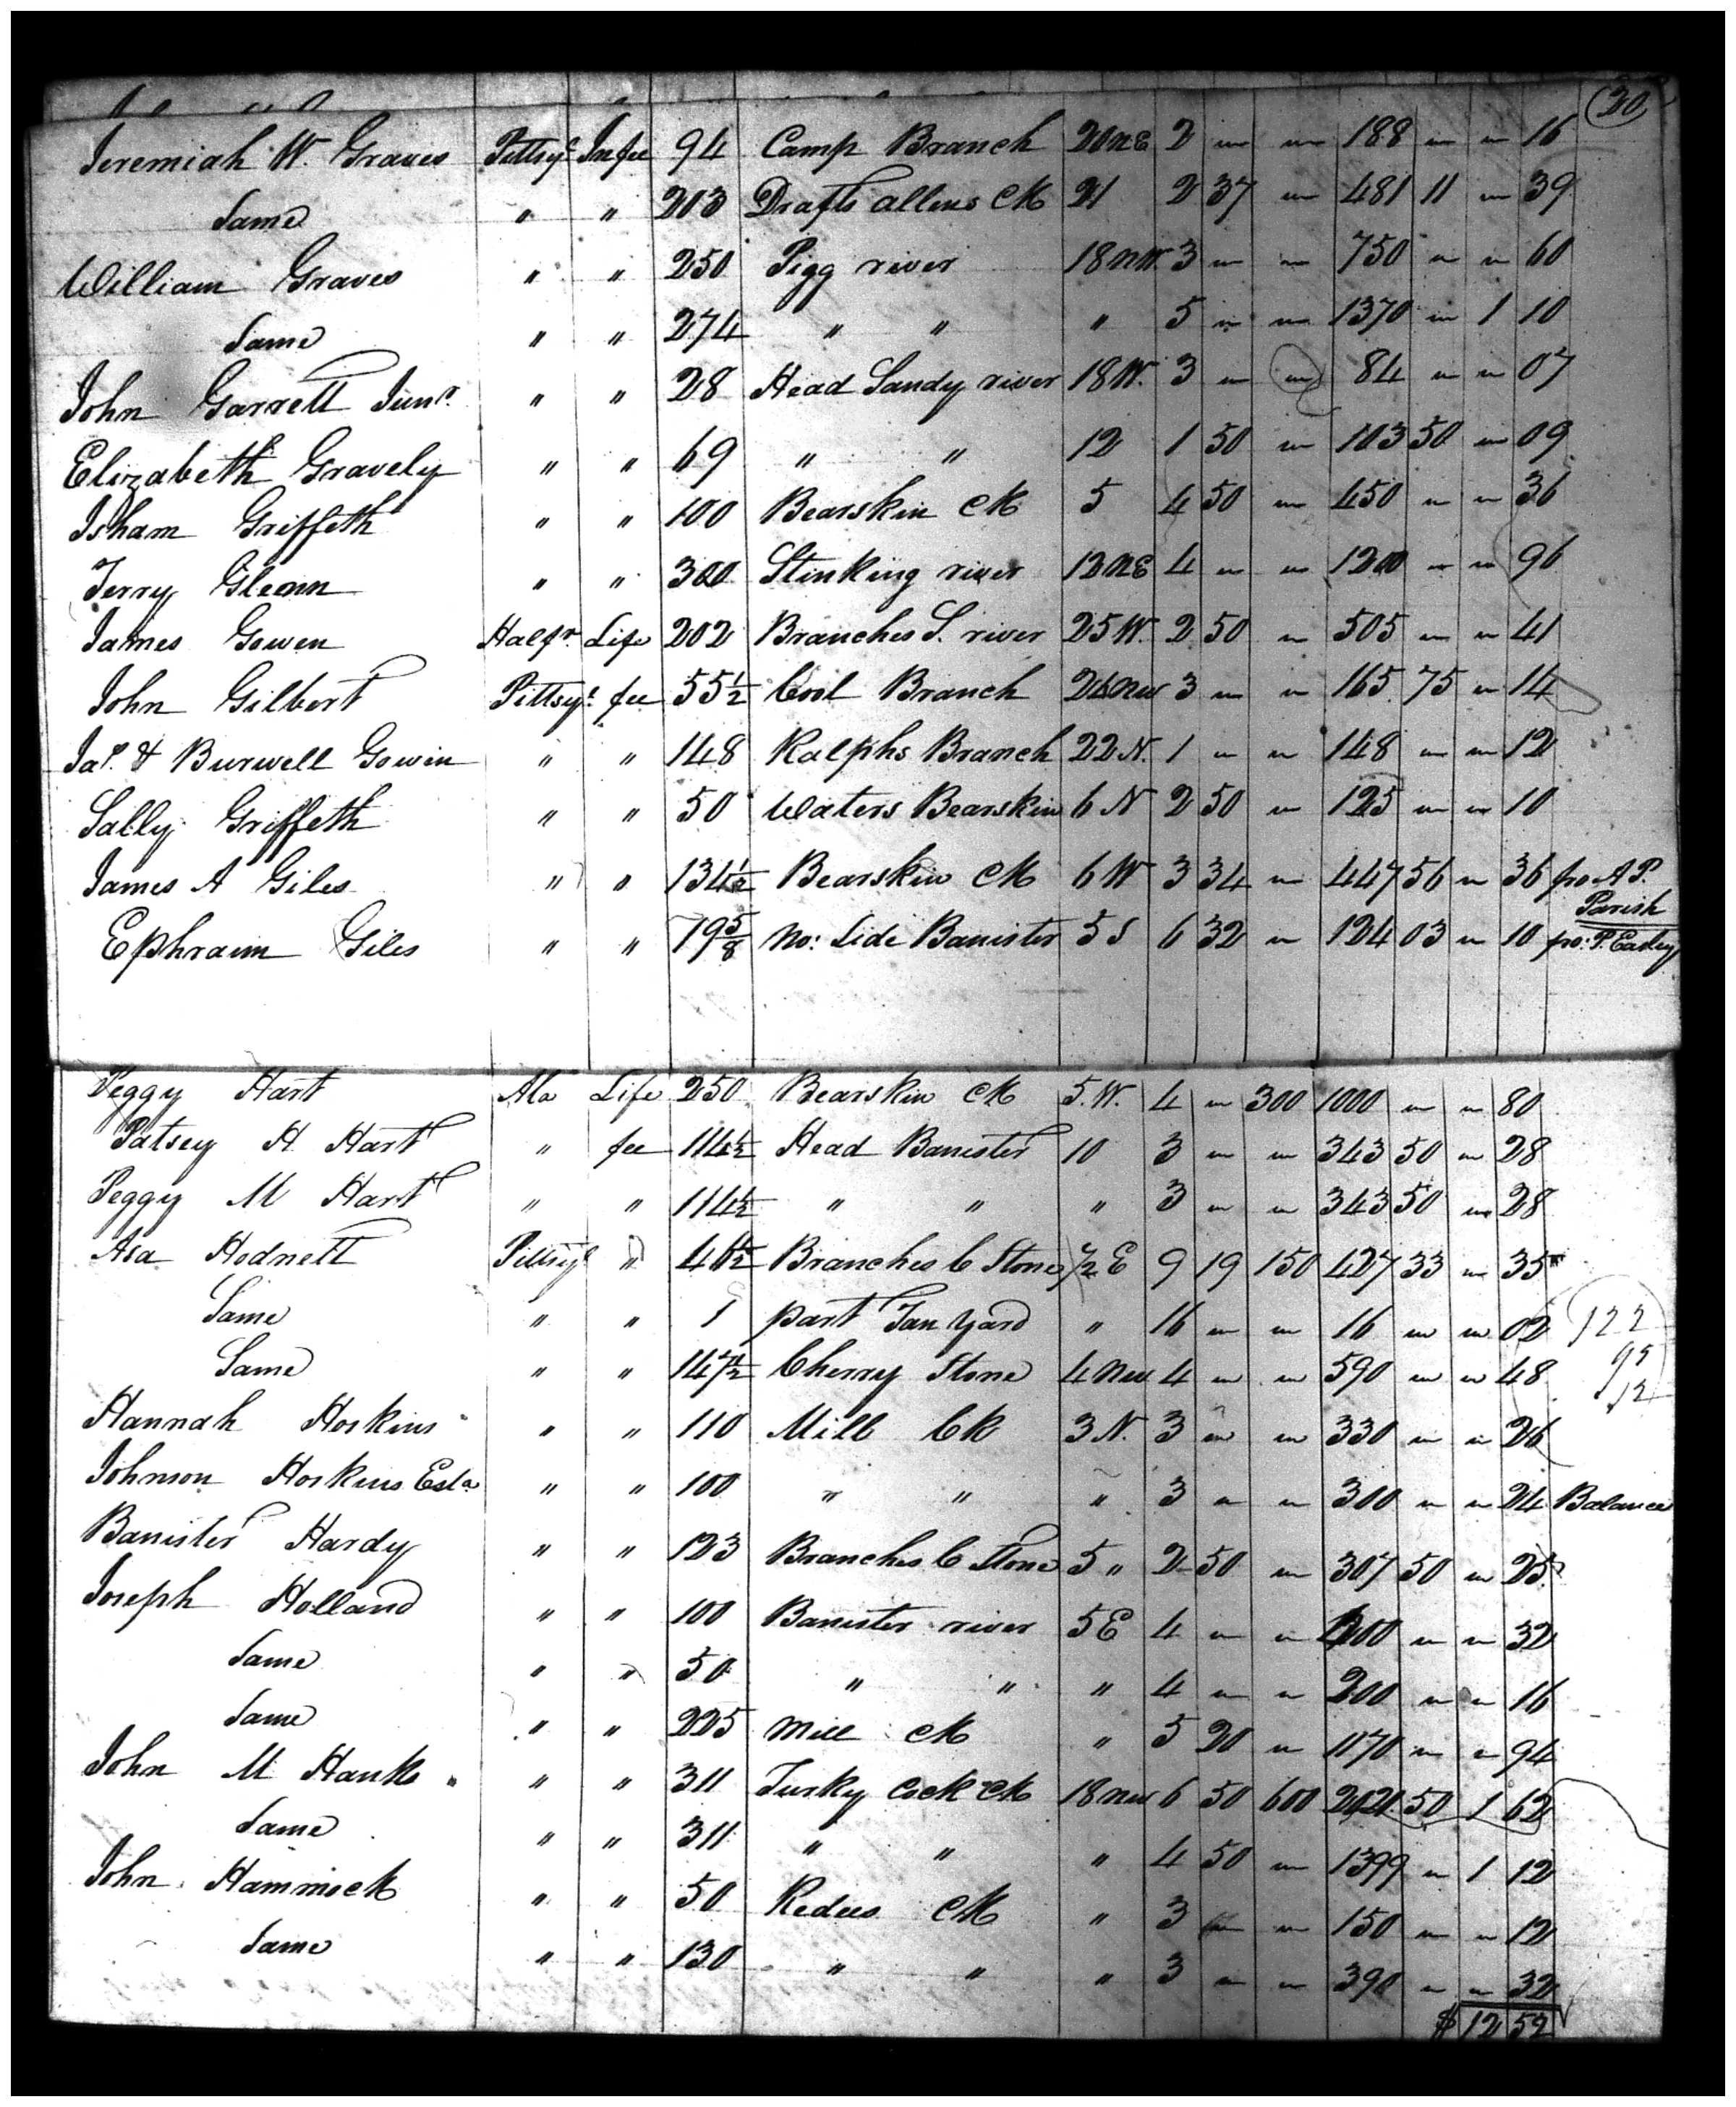 20
Jeremiah W. Graves Pittsya In fee 94 Camp Branch 20 NE 2 " " 188 " " 16
Same " " 203 Drafts allens CK 21 2 37 " 481 11 " 39
William Graves " " 250 Pigg river 18 NW. 3 " " 750 " " 60
Same " " 274 " " " 5 " " 1370 " 1 10
John Garrett Junr. " " 28 Head Sandy river 18 W. 3 " " 84 " " 07
Elizabeth Gravely " " 69 " " 12 1 50 " 103 50 " 09
Isham Griffeth " " 100 Bearskin CK 5 4 50 " 450 " " 36
Terry Glenn " " 300 Stinking river 12 NE 4 " " 1200 " " 96
James Gowen Halfx. Life 202 Branches S. river 25 W. 2 50 " 505 " " 41
John Gilbert Pittsya. fee 55 1/2 Cool Branch 24 NW 3 " " 165 75 " 14
Jas. & Burwell Gowin " " 148 Ralphs Branch 22 N. 1 " " 148 " " 12
Sally Griffeth " " 50 Waters Bearskin 6 N 2 50 " 125 " " 10
James A Giles " " 134 1/2 Bearskin CK 6 W 3 34 " 447 56 " 36 fro A P.
Parish
Ephraim Giles " " 19 5/8 No: Side Banister 5 S 6 32 " 124 03 " 10 fro: P. Easley
Peggy Hart Ala Life 250 Bearskin CK 5. W. 4 " 300 1000 " " 80
Patsey H Hart " fee 114 1/2 Head Banister 10 3 " " 343 50 " 28
Peggy M Hart " " 114 1/2 " " " 3 " " 343 50 " 28
Asa Hodnett Pittsya " 46 1/2 Branches C Stone 1/2 E 9 19 150 427 33 " 35
Same " " 1 part Tan yard " 16 " " 16 " " 02 122
Same " " 147 1/2 Cherry Stone 4 NW 4 " " 590 " " 48
Hannah Hoskins " " 110 Mill Ck 3 N. 3 " " 330 " " 26
Johnson Hoskins Esta. " " 100 " " " 3 " " 300 " " 24 Balance
Banister Hardy " " 123 Branches C Stone 5 " 2 50 " 307 50 " 25
Joseph Holland " " 100 Banister river 5 E 4 " " 400 " " 32
Same " " 50 " " " 4 " " 200 " " 16
Same " " 225 Mill CK " 5 20 " 1170 " " 94
John M Hank " " 311 Turky Cock CK 18 NW 6 50 600 2021 50 1 62
Same " " 311 " " " 4 50 " 1399 " 1 12
John Hammock " " 50 Redies CK " 3 " " 150 " " 12
Same " " 130 " " " 3 " " 390 " " 32
$ 12 52